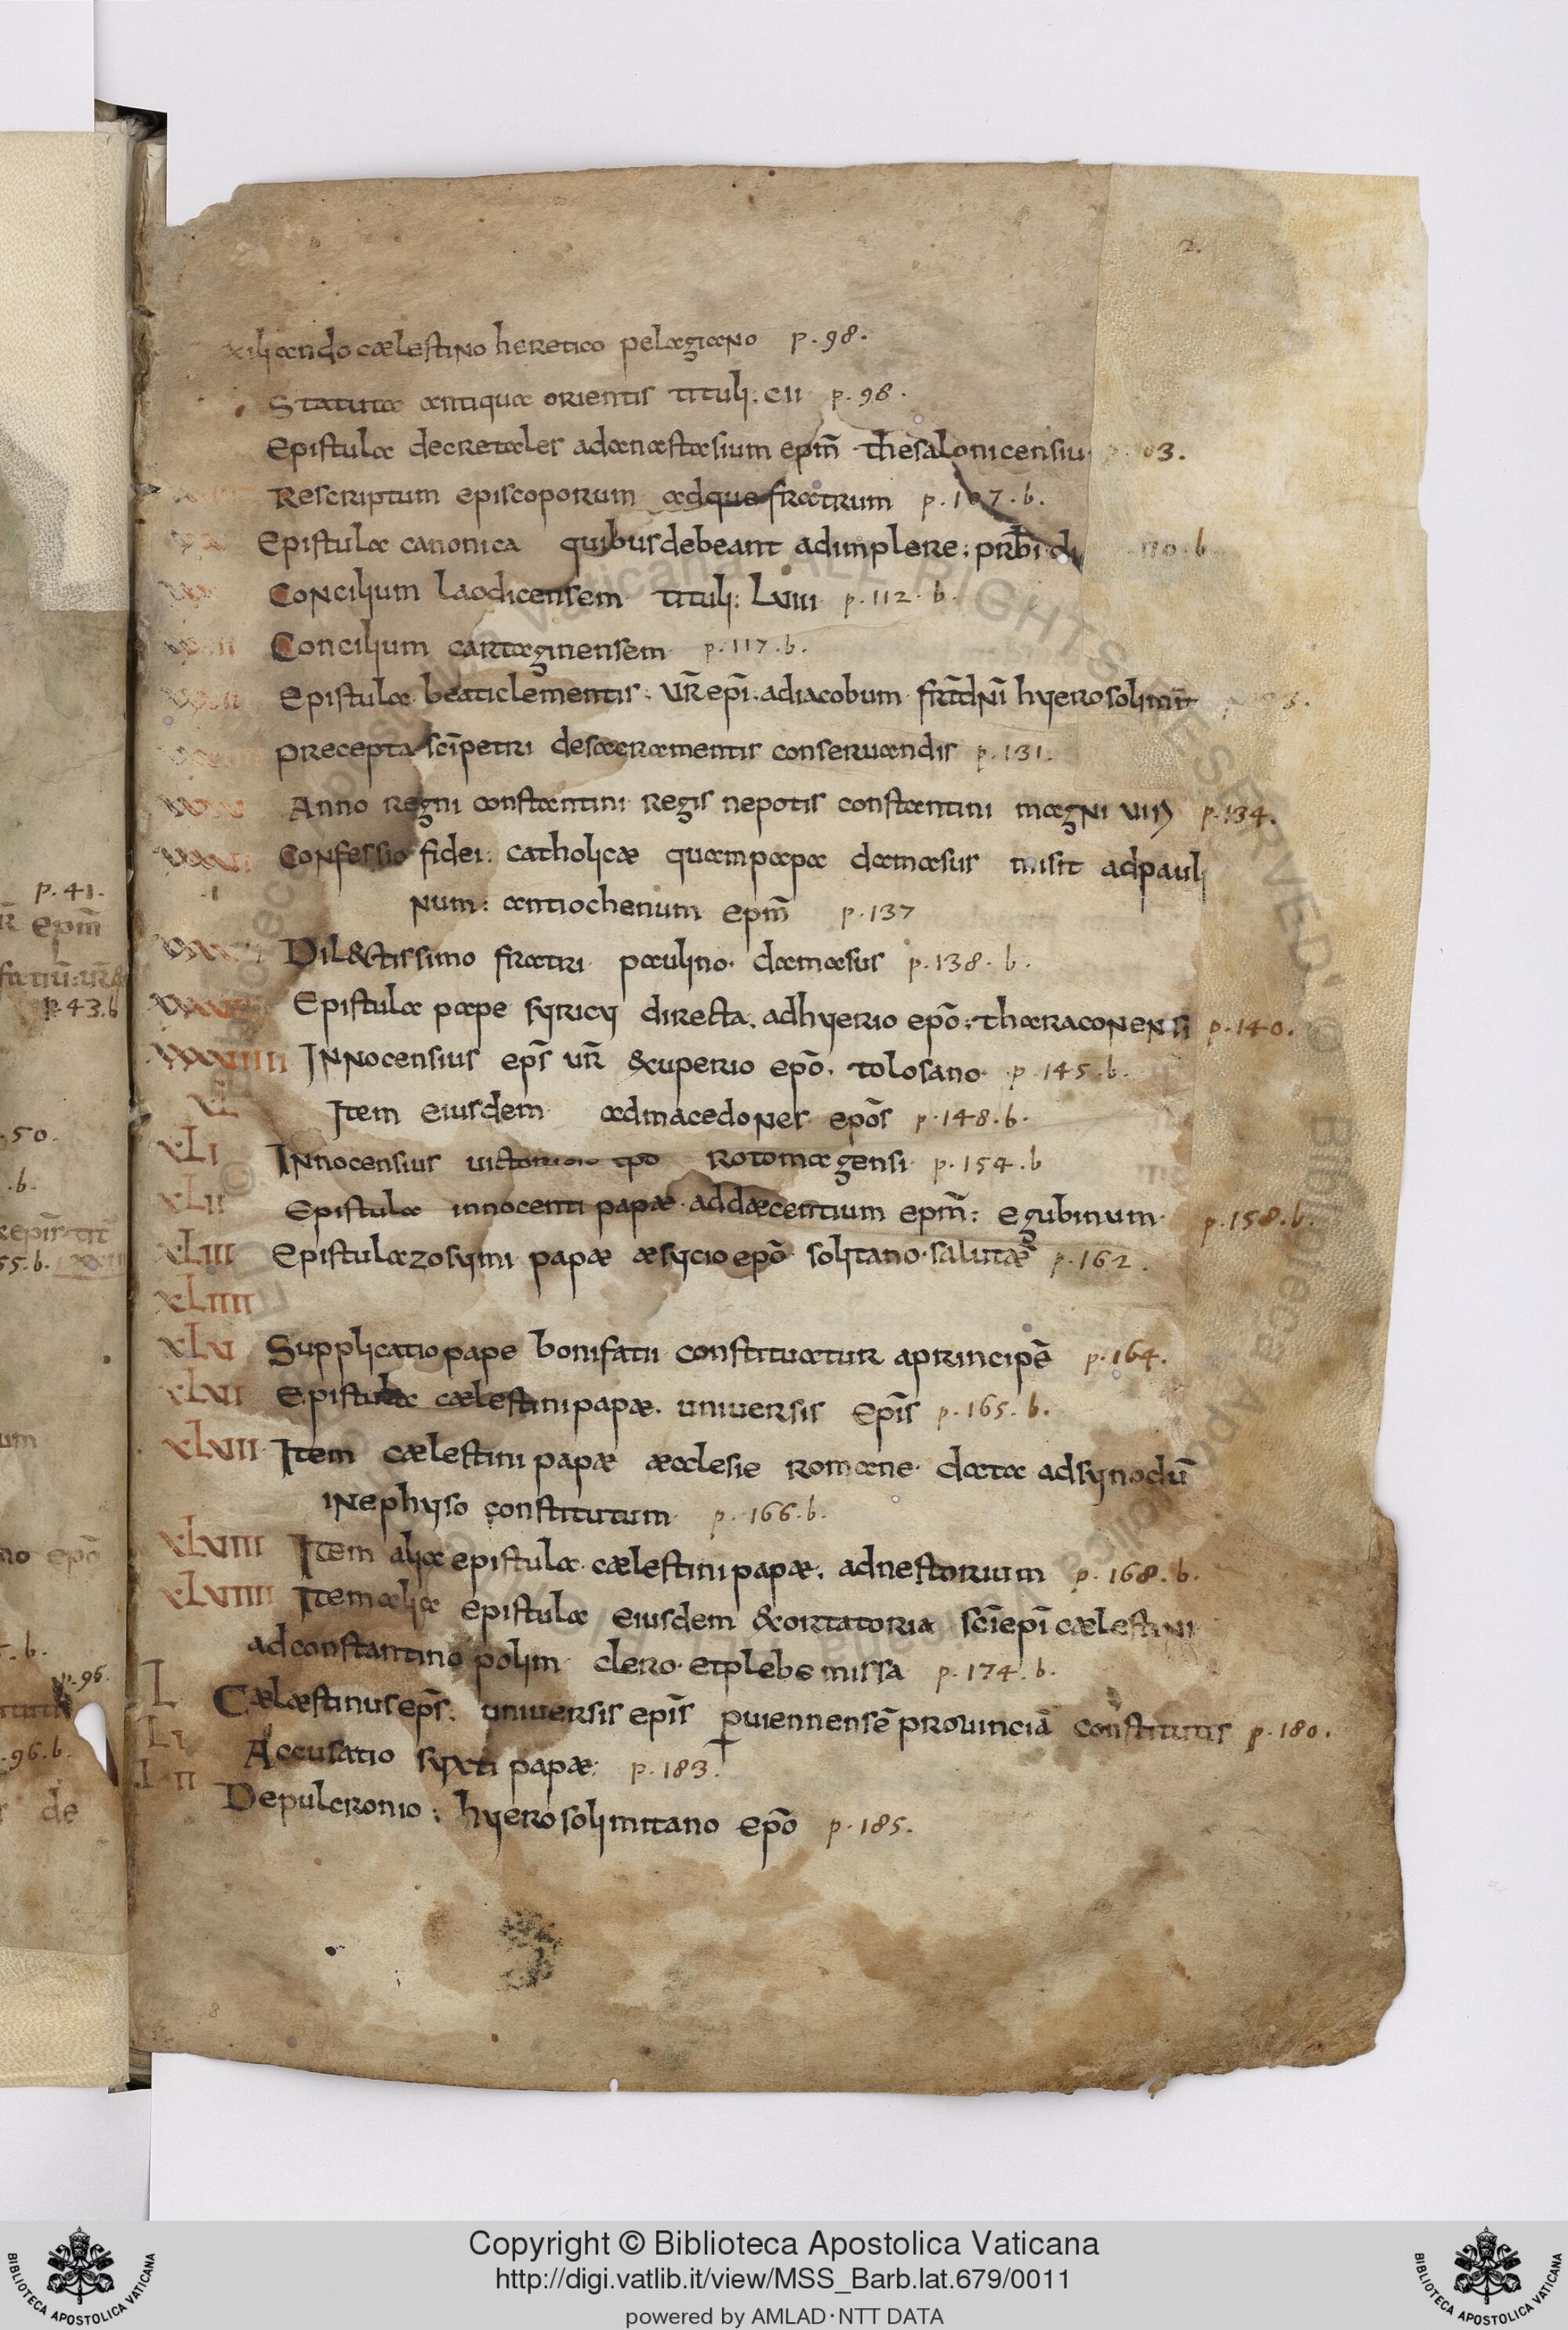 2.
xiliando cælestino heretico pelagiano p. 98.
Statuta antiqua orientis tituli. cii p. 98.
Epistula decretales ad anastasium epm̄ thesalonicensiu 03.
Rescriptum episcoporum adque fratrum p. 107. b.
Epistula canonica quibus debeant adimplere; prb̄i di 110. b
Concilium laodicensem tituli: Lviiii p. 112. b.
Concilium cartaginensem p. 117. b.
Epistula beati clementis. ur̄ epī. ad iacobum fr̄ dn̄i hyerosolimit̄
precepta scī petri de sacramentis conseruandis p. 131.
Anno regni constantini regis nepotis constantini magni p. 134.
Confessio fidei: catholicæ quam papa damasus misit ad pauli
num: antiochenum epm̄ p. 137
Dil&tissimo fratri paulino. damasus p. 138. b.
Epistula pape syricy directa. ad hyerio epō: tharaconensi p. 140.
xxxviiii Innocensius eps̄ ur̄ &superio epō. tolosano p. 145. b.
xL Item eiusdem ad macedones epōs p. 148. b.
xLi Innocensius uictorio epo rotomagensi p. 154. b
xLii Epistula innocenti papæ ad dæcentium epm̄: egubinum p. 158. b.
xLiii Epistula zosymi papæ æsycio epō solitano salutæ p. 162.
xLiiii
xLv Supplicatio pape bonifatii constituatur a principē p. 164.
xLvi Epistula cælestini papæ. uniuersis epīs p. 165. b.
xLvii Item cælestini papæ æcclesie romane data ad synodū
in ephyso constitutum p. 166. b.
xLviii Item alia epistula cælestini papæ. ad nestorium p. 168. b.
xLviiii Item alia epistula eiusdem &ortatoria scī epī cælestini
ad constantinopolim clero et plebe missa p. 174. b.
L Cælæstinus eps̄. uniuersis epīs p uiennensē prouinciā constitutis p. 180.
Li Accusatio syxti papæ: p. 183.
Lii De pulcronio; hyerosolimitano epō p. 185.
p. 41.
epm̄
p. 43. b
.50.
.b.
55. b.
um
no epō
.b.
p. 96.
.96. b.
de
Copyright © Biblioteca Apostolica Vaticana
http://digi.vatlib.it/view/MSS_Barb.lat.679/0011
powered by AMLAD·NTT DATA
BIBLIOTECA APOSTOLICA VATICANA
BIBLIOTECA APOSTOLICA VATICANA